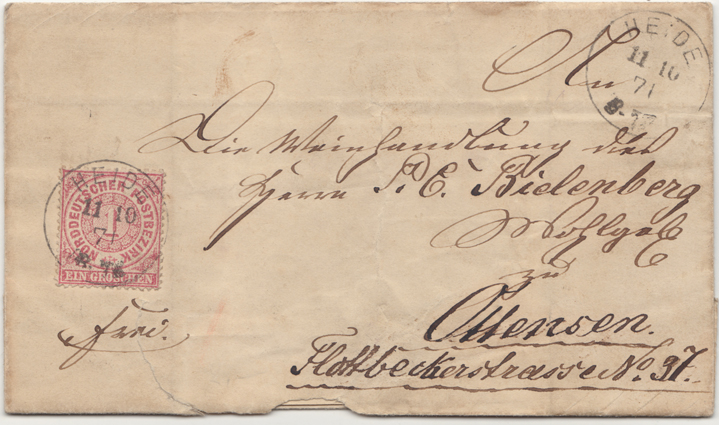 HEIDE
11 10
71
An
Die Weinhandlung des
Herrn P. E. Bielenberg
Wohlgeb
zu
Ottensen.
Flottbeckerstrasse No. 97.
HEIDE
11 10
71
NORDDEUTSCHER POSTBEZIRK
1
EIN GROSCHEN
frei.